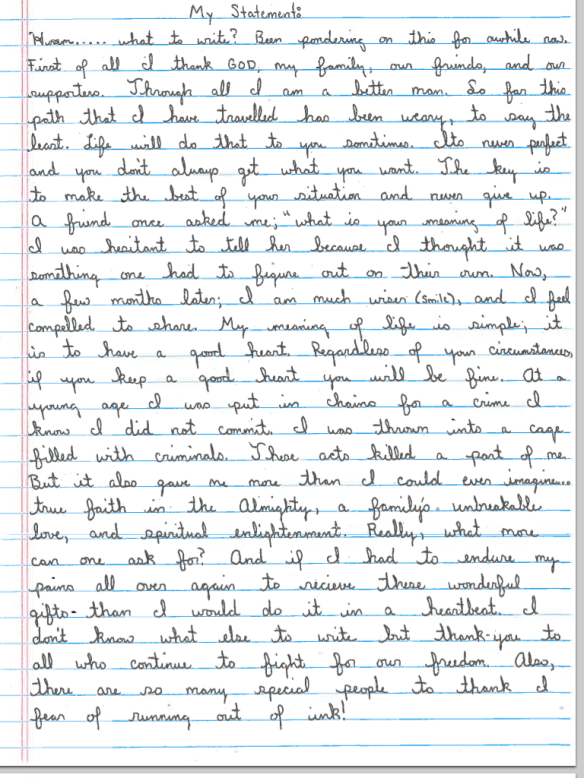 My Statement:
"Hmm..... what to write? Been pondering on this for awhile now.
First of all I thank GOD, my family, our friends, and our
supporters. Through all I am a better man. So far this
path that I have travelled has been weary, to say the
least. Life will do that to you sometimes. Its never perfect
and you don't always get what you want. The key is
to make the best of your situation and never give up.
A friend once asked me; "what is your meaning of life?"
I was hesitant to tell her because I thought it was
something one had to figure out on their own. Now,
a few months later; I am much wiser (smile), and I feel
compelled to share. My meaning of life is simple; it
is to have a good heart. Regardless of your circumstances,
if you keep a good heart you will be fine. At a
young age I was put in chains for a crime I
know I did not commit. I was thrown into a cage
filled with criminals. These acts killed a part of me.
But it also gave me more than I could ever imagine...
true faith in the Almighty, a family's unbreakable
love, and spiritual enlightenment. Really, what more
can one ask for? And if I had to endure my
pains all over again to recieve these wonderful
gifts- than I would do it in a heartbeat. I
don't know what else to write but thank-you to
all who continue to fight for our freedom. Also,
there are so many special people to thank I
fear of running out of ink!